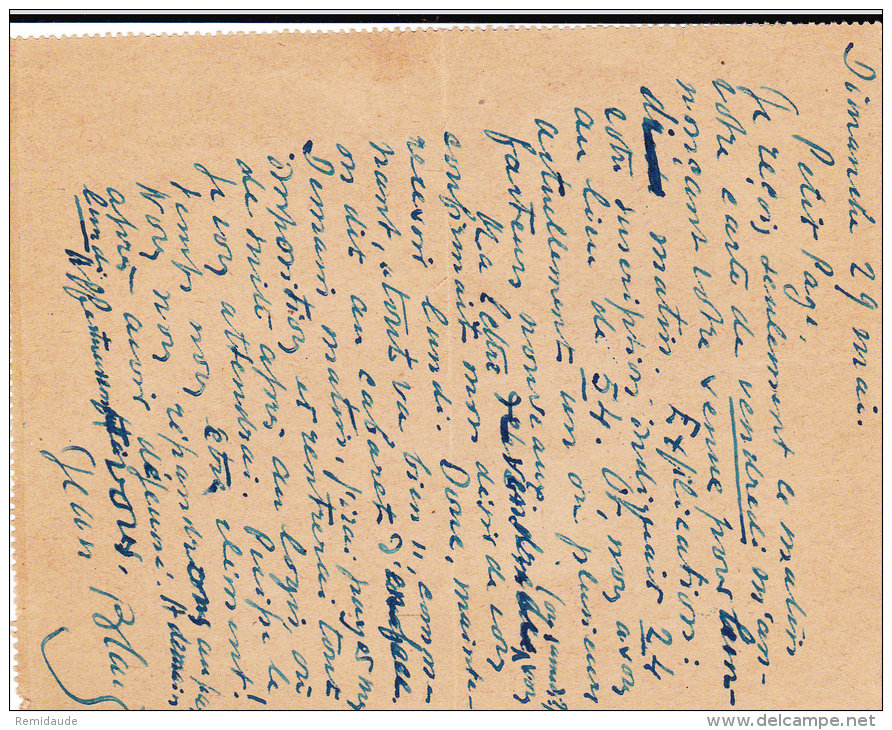 Dimanche 29 mai.
Petit Page,
Je reçois seulement ce matin
votre carte de vendredi m'an-
nonçant votre venue pour lun-
di matin. Explication :
votre suscription indiquait 24
au lieu de 54. Or, nous avons
actuellement un ou plusieurs
facteurs nouveaux
(ou samedi?)
Ma lettre de vendredi vous
confirmait mon désir de vous
recevoir lundi. Donc, mainte-
nant, "tout va bien", comme
on dit au cabaret d'en face.
Demain matin, j'irai payer mes
impositions et rentrerai tout
de suite après au logis, où
je vous attendrai. Puisse le
être clément!
temps nous
Nous nous
après avoir déjeuné. A demain
lundi
Jean
Remidaude
www.delcampe.net